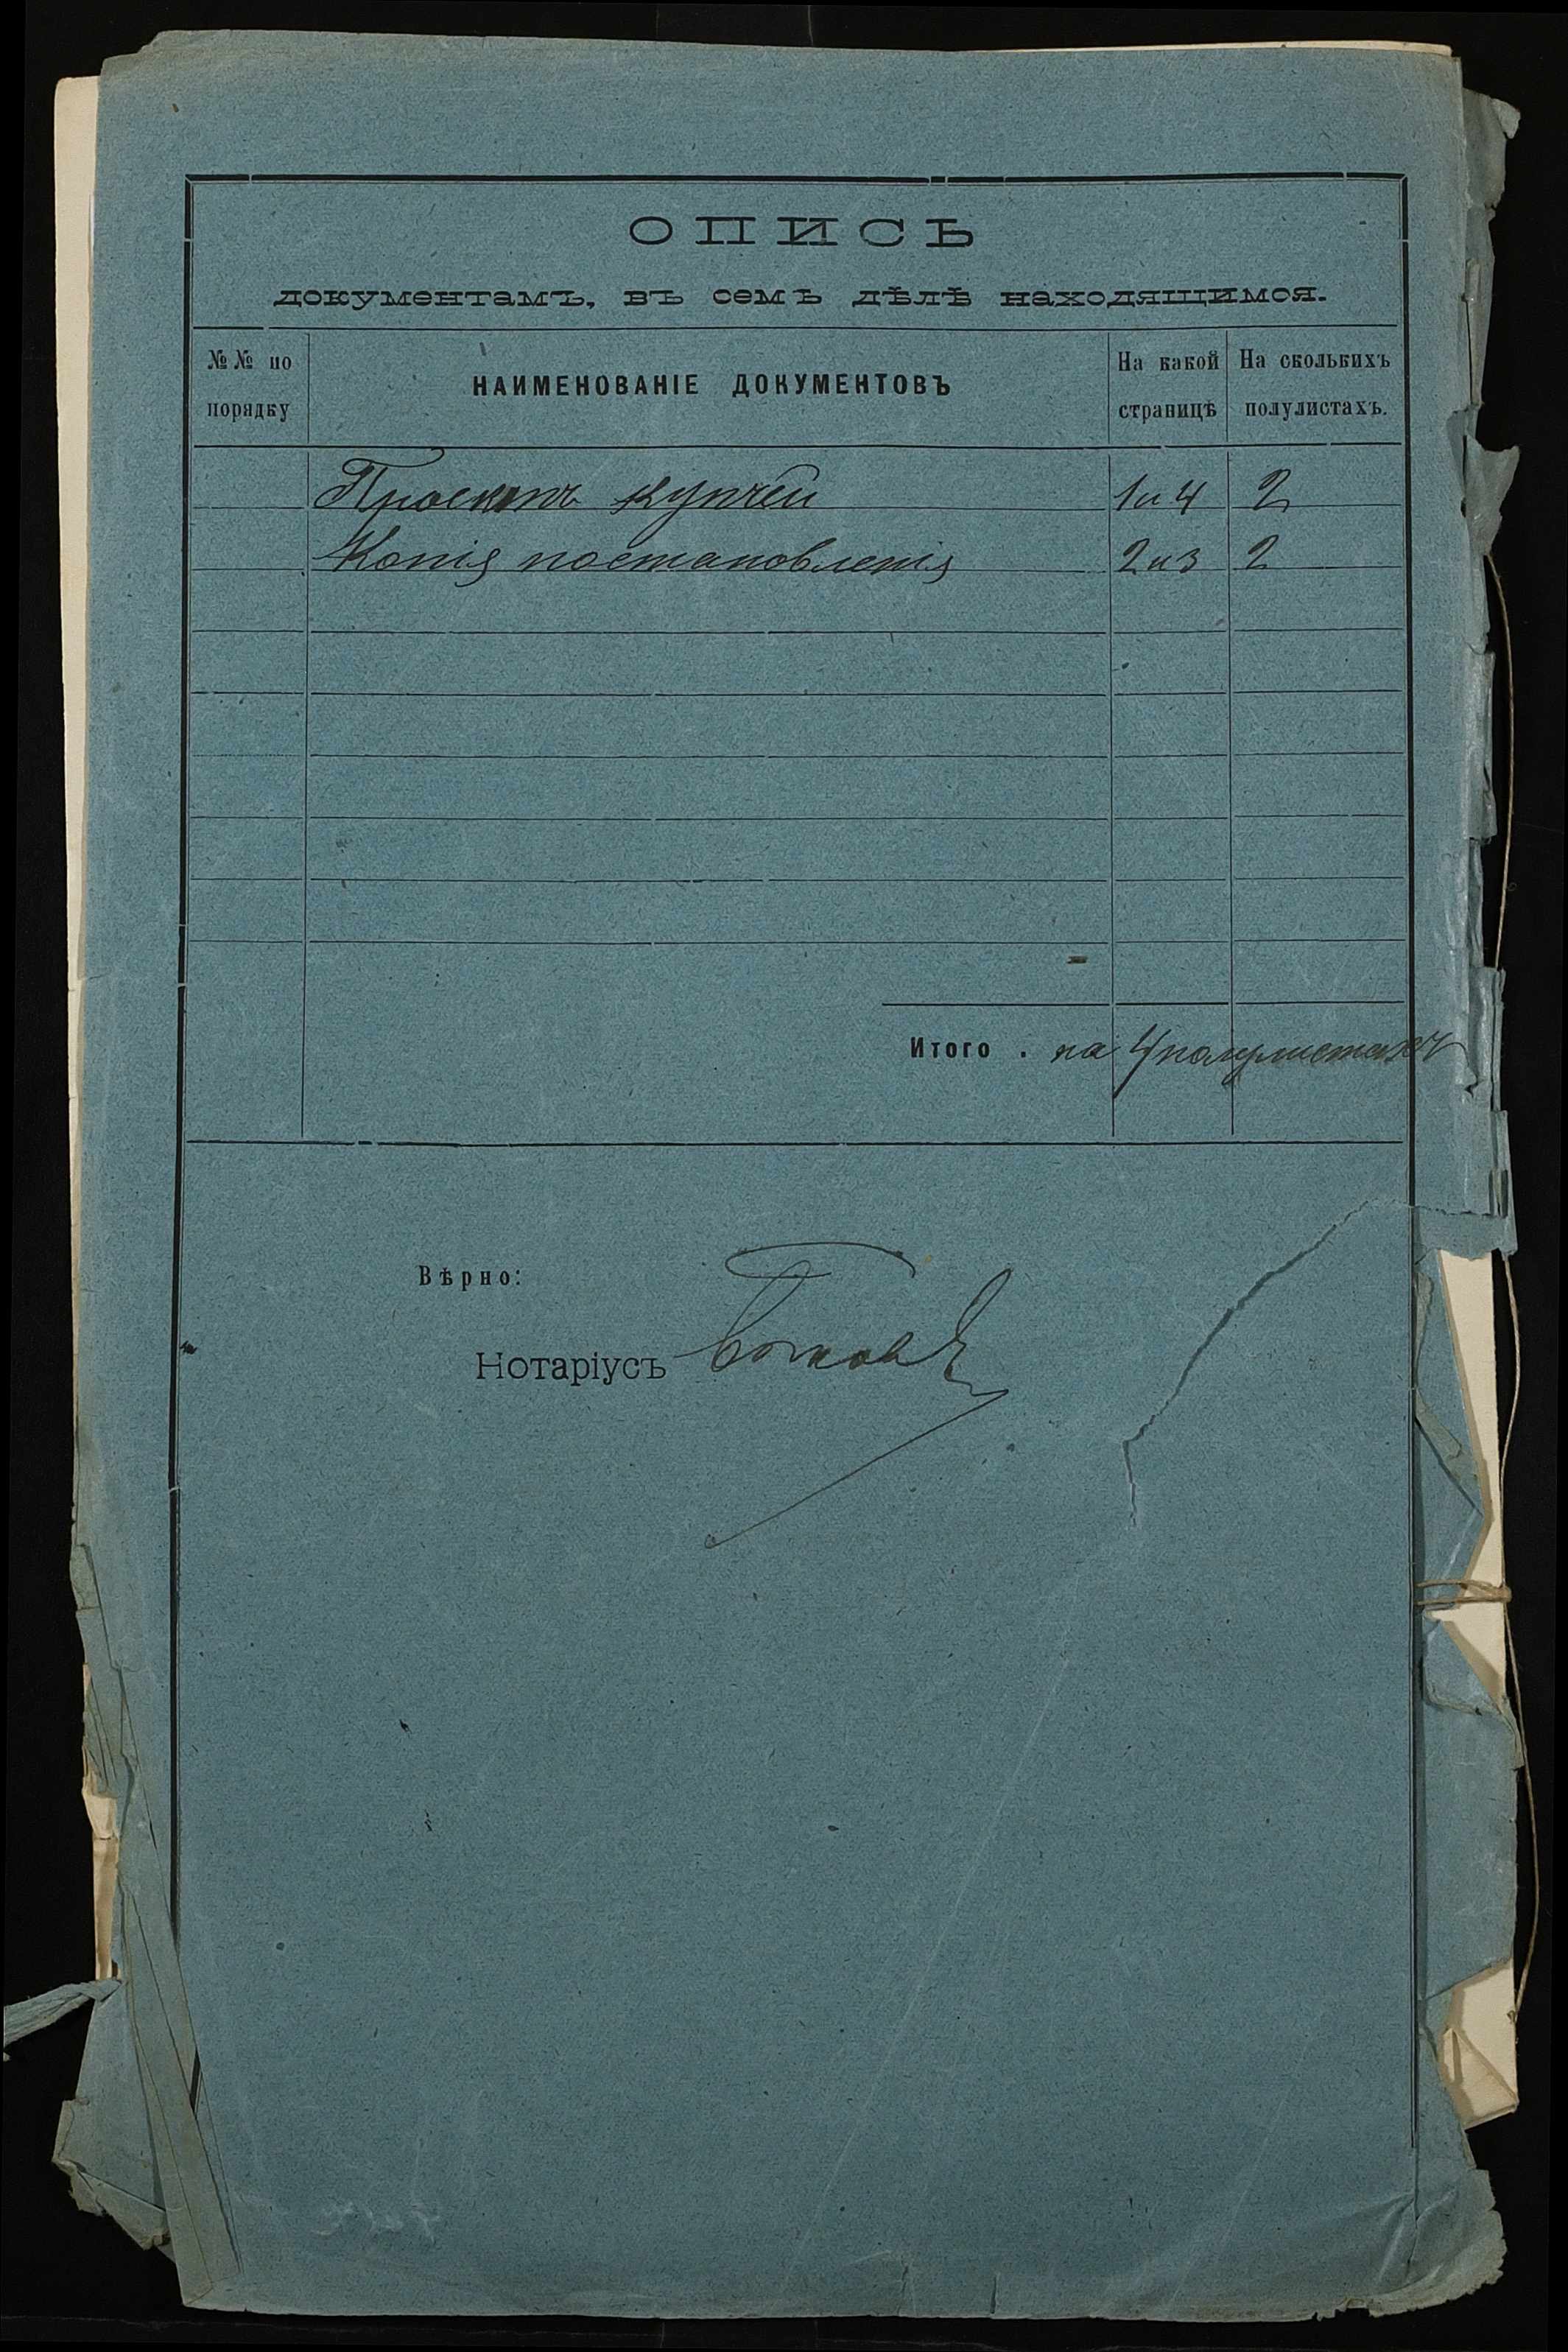 ОПИСЬ
документамъ, въ семъ дѣлѣ находящимся.
№№ по порядку
НАИМЕНОВАНІЕ ДОКУМЕНТОВЪ
На какой страницѣ
На сколькихъ полулистахъ.
Проектъ купчей 1 и 4 2
Копія постановленія 2 и 3 2
Итого . на 4 полулистахъ
Вѣрно:
Нотаріусъ